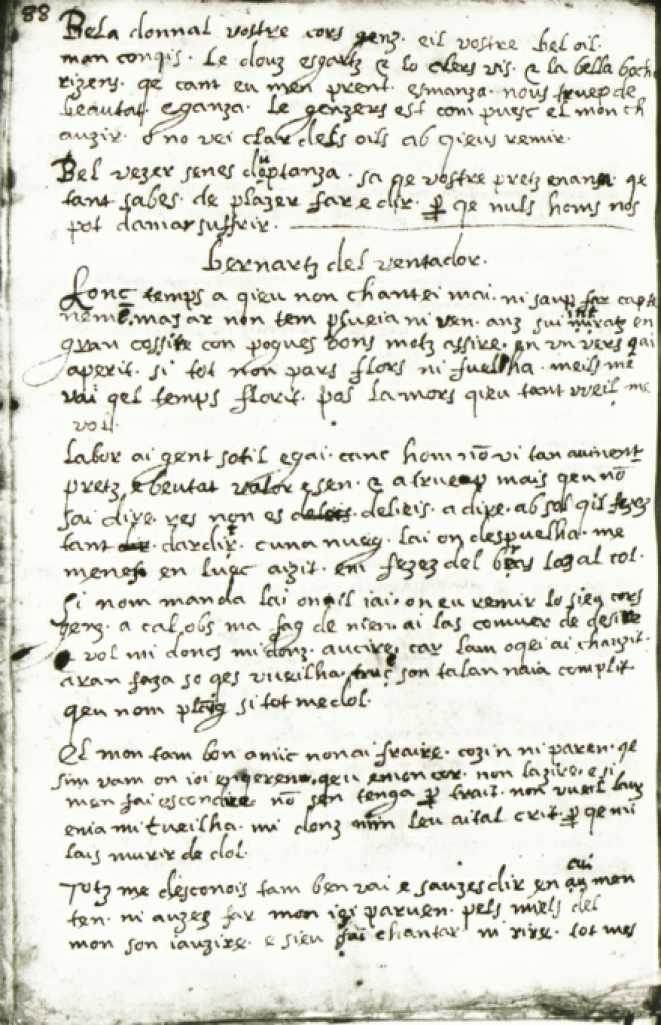 88
Bela donnal vostre cors genz. eil vostre bel oil.
man conqis. Le douz esgartz & lo clers vis. & la bella boch
rizens. qe cant eu men prent esmanza. nous truep de
beautat eganza. Le genzers est com puesc el mon ch
auzir. o no vei clar dels oils ab qieus remir.
Bel vezer senes doptanza. sa qe vostre pretz enansa qe
tant sabes de plazer far e dir. p qe nuls homs nos
pot damar suffrir.
bernartz del ventador.
Lonc temps a qieu non chantei mai. ni saup far
mas ar non tem plueia ni ven. anz sui en
gran cossire con pogues bons motz assire. en un vers qai
aperit. si tot non pars flors ni fuelha. meils me
vai qel temps florit. pos lamors qieu tant vueil me
vol.
labor ai gent sotil egai. canc hom nō vi tan avinent
pretz e beutat valor e sen. & a truep mais qeu nō
sai dire. res non es delieis. a dire. ab sol qil fezez
tant dardir. cuna nueg. lai on despuelha. me
menes en luec aizit. em fezez del bratz latz al col.
Si nom manda lai on il iai. on eu remir lo sieu cors
genz. a cal obs ma fag de nien. ai las com muer de desire
e vol mi doncs midonz. aucire. car lam oqei ai chauzit.
aran faza so qes vueilha. son talan naia complit
qeu nom plaig si tot me dol.
El mon tam bon amic non ai fraire. cozin ni paren. qe
sim vam on ioi enqeren. qeu enien cor. non lazire. e si
men fai escondire nō sen tenga p trait. non vueil lauz
enia mi tueilha. mi donz nim leu aital crit. p qe mi
lais murir de dol.
Totz me desconois tam ben vai e sauzes dir en cui men
ten. ni auzes far mon ioi parven. pels miels del
mon son iauzire. e sieu fai chantar ni rire. tot mes